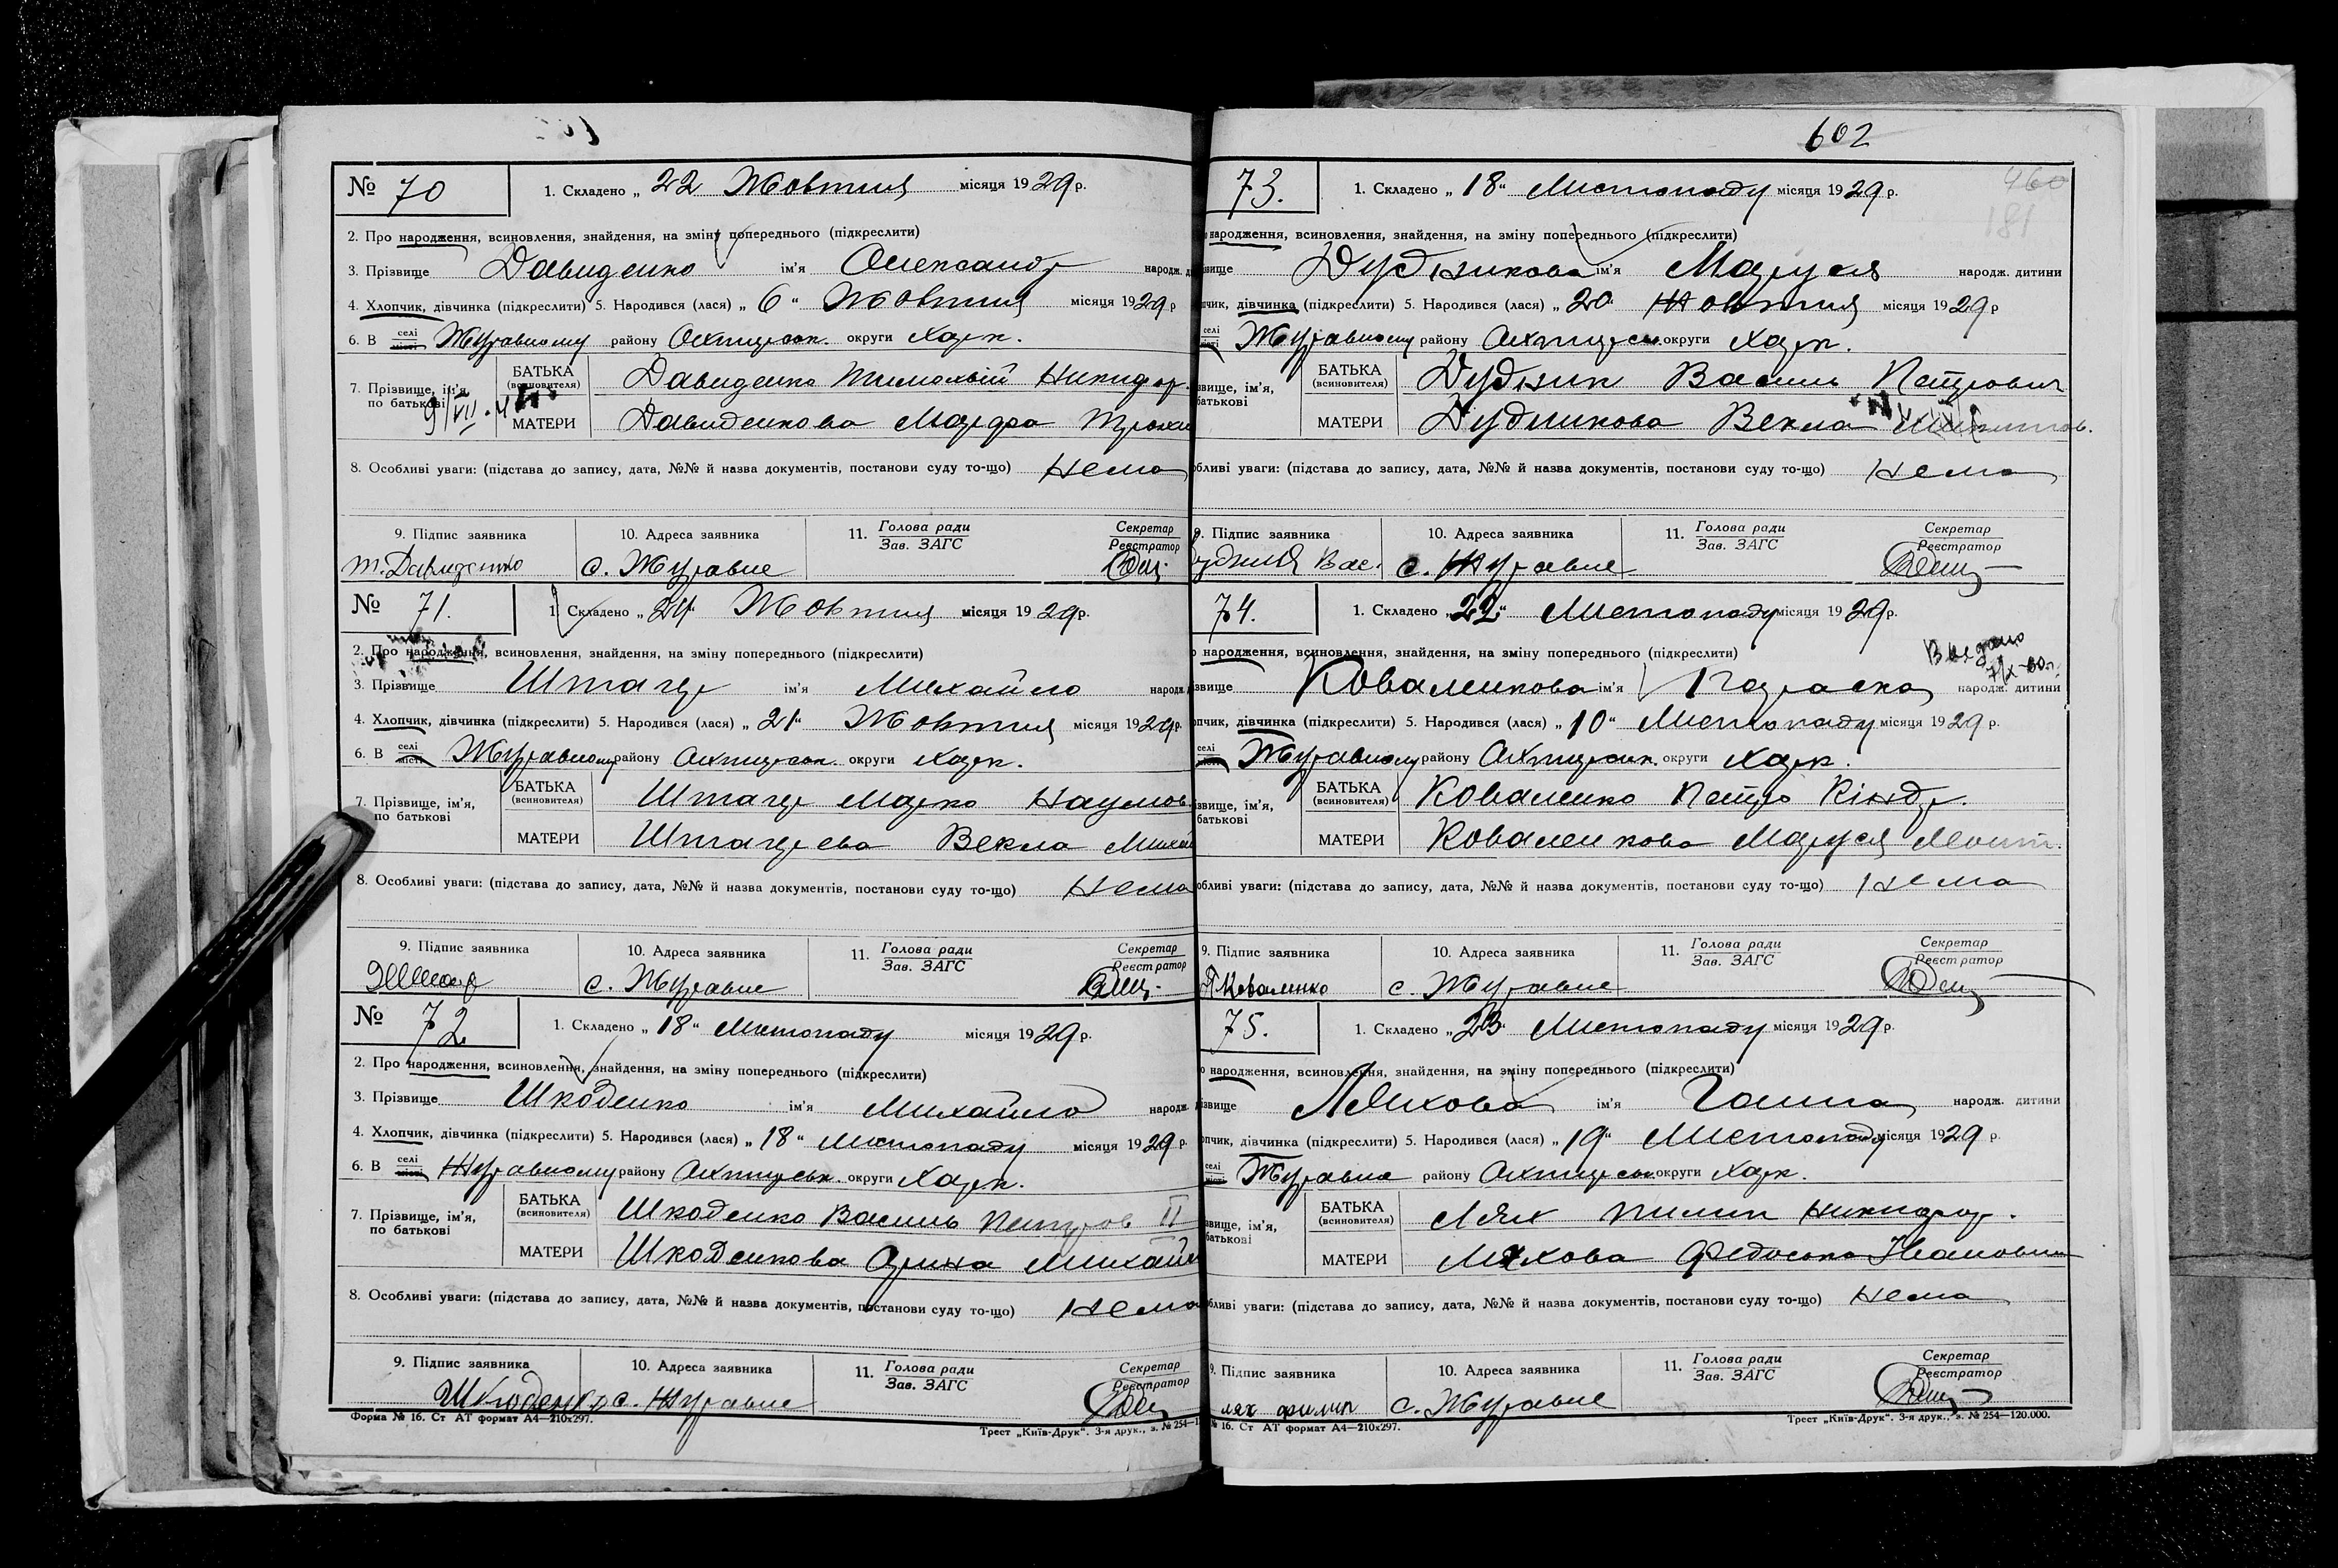 602
460
181
№ 70
1. Складено „ 22 Жовтня місяця 1929 р.
2. Про народження, всиновлення, знайдення, на зміну попереднього (підкреслити)
3. Прізвище Давиденко ім'я Олександр народж.
4. Хлопчик, дівчинка (підкреслити) 5. Народився (лася) „ 6 “ Жовтня місяця 1929 р
6. В селі місті Журавному району Охтирськ. округи Харк.
7. Прізвище, ім'я, по батькові
БАТЬКА (всиновителя) Давиденко Тимохвій Никифор.
МАТЕРИ Давиденкова Марфа
8. Особливі уваги: (підстава до запису, дата, №№ й назва документів, постанови суду то-що) Нема
9. Підпис заявника 10. Адреса заявника 11. Голова ради Зав. ЗАГС Секретар Реєстратор
Т. Давиденко с. Журавне
№ 71.
1. Складено „ 24 “ Жовтня місяця 1929 р.
2. Про народження, всиновлення, знайдення, на зміну попереднього (підкреслити)
3. Прізвище Штагер ім'я Михайло народж.
4. Хлопчик, дівчинка (підкреслити) 5. Народився (лася) „ 21 “ Жовтня місяця 1929 р.
6. В селі місті Журавному району Охтирськ. округи Харк.
7. Прізвище, ім'я, по батькові
БАТЬКА (всиновителя) Штагер Марко Наумов.
МАТЕРИ Штагерева Векла Михай
8. Особливі уваги: (підстава до запису, дата, №№ й назва документів, постанови суду то-що) Нема
9. Підпис заявника 10. Адреса заявника 11. Голова ради Зав. ЗАГС Секретар Реєстратор
с. Журавне
№ 72
1. Складено „ 18 “ Листопаду місяця 1929 р.
2. Про народження, всиновлення, знайдення, на зміну попереднього (підкреслити)
3. Прізвище Шкоденко ім'я Михайло народж.
4. Хлопчик, дівчинка (підкреслити) 5. Народився (лася) „ 18 “ Листопаду місяця 1929 р.
6. В селі місті Журавному району Охтирськ. округи Харк.
7. Прізвище, ім'я, по батькові
БАТЬКА (всиновителя) Шкоденко Василь Петров II
МАТЕРИ Шкоденкова Орина Михайл
8. Особливі уваги: (підстава до запису, дата, №№ й назва документів, постанови суду то-що) Нема
9. Підпис заявника 10. Адреса заявника 11. Голова ради Зав. ЗАГС Секретар Реєстратор
Шкоденко с. Журавне
Форма № 16. Ст АТ формат А4—210х297.
Трест „Київ-Друк“. 3-я друк., з. № 254—1
73.
1. Складено „ 18 “ Листопаду місяця 1929 р.
народження, всиновлення, знайдення, на зміну попереднього (підкреслити)
звище Дудникова ім'я Маруся народж. дитини
пчик, дівчинка (підкреслити) 5. Народився (лася) „ 20 “ Жовтня місяця 1929 р
селі місті Журавному району Охтирськ. округи Харк.
звище, ім'я, батькові
БАТЬКА (всиновителя) Дудник Василь Петрович
МАТЕРИ Дудникова Векла
бливі уваги: (підстава до запису, дата, №№ й назва документів, постанови суду то-що) Нема
9. Підпис заявника 10. Адреса заявника 11. Голова ради Зав. ЗАГС Секретар Реєстратор
Вас. с. Журавне
74.
1. Складено „ 22 “ Листопаду місяця 1929 р.
народження, всиновлення, знайдення, на зміну попереднього (підкреслити)
Выдано
7/X-60г.
звище Коваленкова ім'я Параска народж. дитини
пчик, дівчинка (підкреслити) 5. Народився (лася) „ 10 “ Листопаду місяця 1929 р.
селі місті Журавному району Охтирськ. округи Харк.
звище, ім'я, батькові
БАТЬКА (всиновителя) Коваленко Петро Кіндр.
МАТЕРИ Коваленкова Маруся Леонт.
бливі уваги: (підстава до запису, дата, №№ й назва документів, постанови суду то-що) Нема
9. Підпис заявника 10. Адреса заявника 11. Голова ради Зав. ЗАГС Секретар Реєстратор
П Коваленко с. Журавне
75.
1. Складено „ 23 “ Листопаду місяця 1929 р.
народження, всиновлення, знайдення, на зміну попереднього (підкреслити)
звище Ляхова ім'я Ганна народж. дитини
пчик, дівчинка (підкреслити) 5. Народився (лася) „ 19 “ Листопаду місяця 1929 р.
селі місті Журавне району Охтирськ. округи Харк.
звище, ім'я, батькові
БАТЬКА (всиновителя) Лях Пилип Никифор.
МАТЕРИ Ляхова Федоська Івановна
бливі уваги: (підстава до запису, дата, №№ й назва документів, постанови суду то-що) Нема
9. Підпис заявника 10. Адреса заявника 11. Голова ради Зав. ЗАГС Секретар Реєстратор
лях филип с. Журавне
№ 16. Ст АТ формат А4—210х297.
Трест „Київ-Друк“. 3-я друк., з. № 254—120.000.